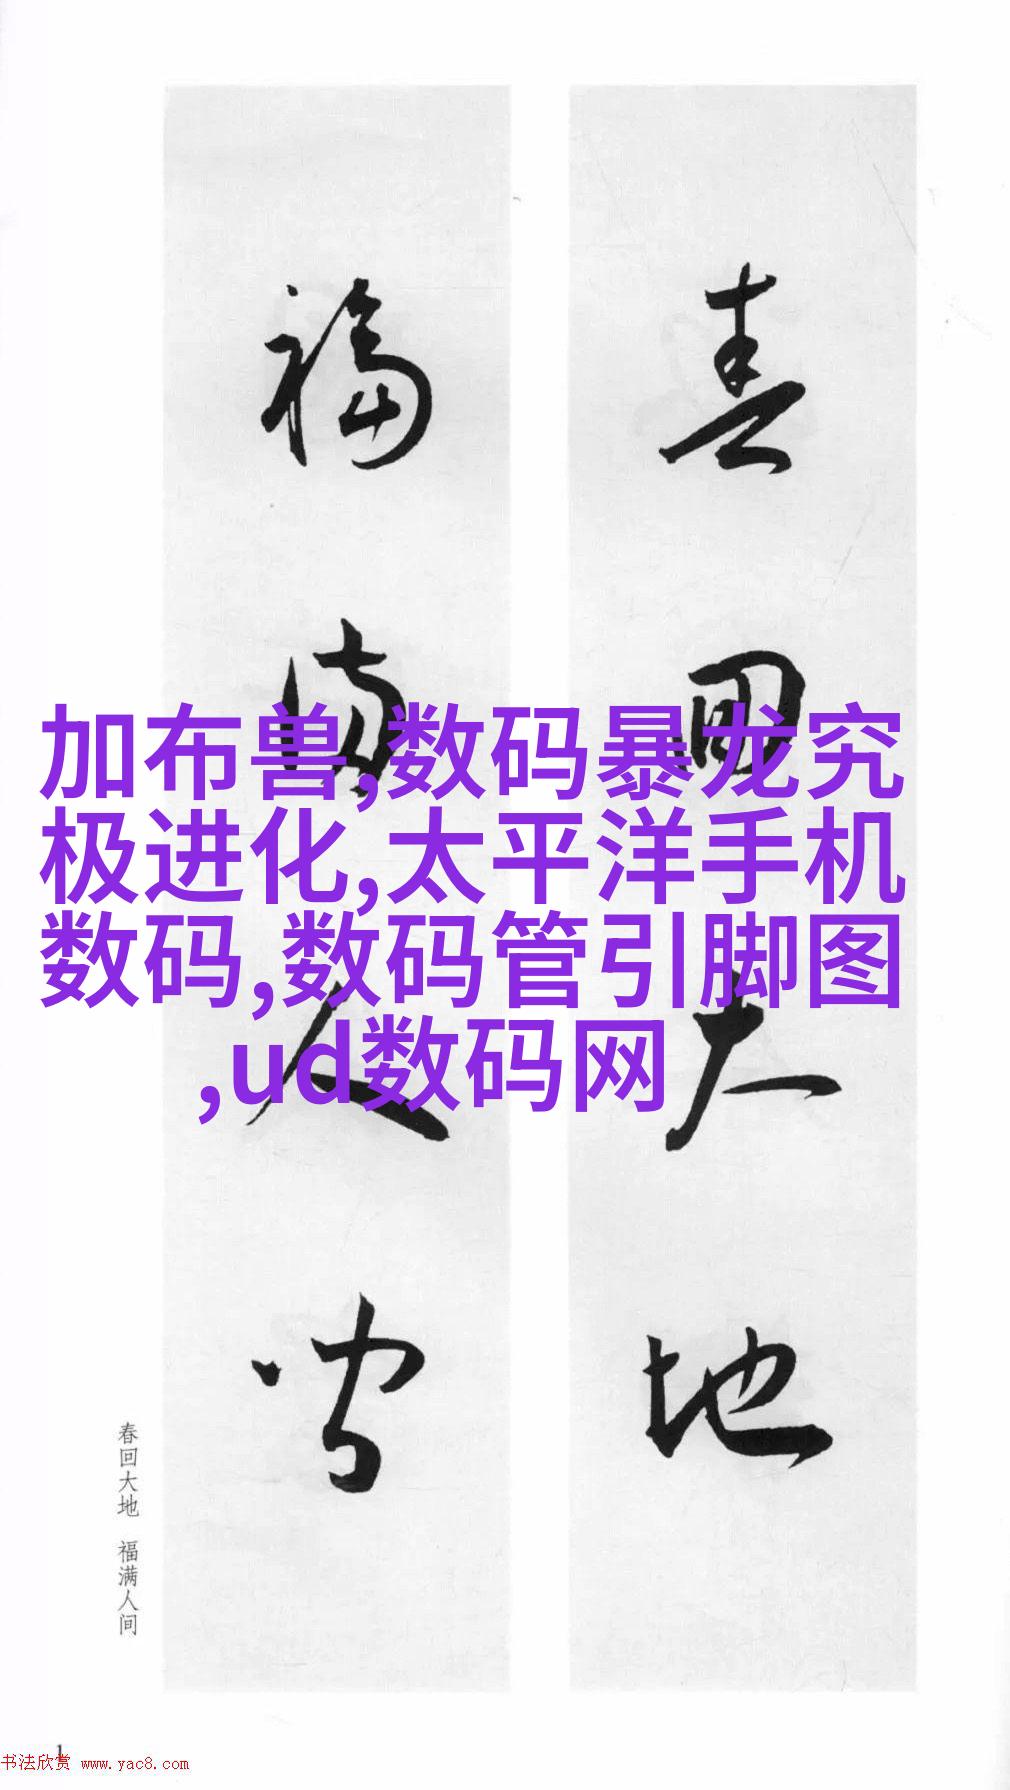 春回大地
福满人间
加布兽,数码暴龙究
极进化,太平洋手机
数码,数码管引脚图
,ud数码网
春回大地 福满人间
1
书法欣赏 www.yac8.com